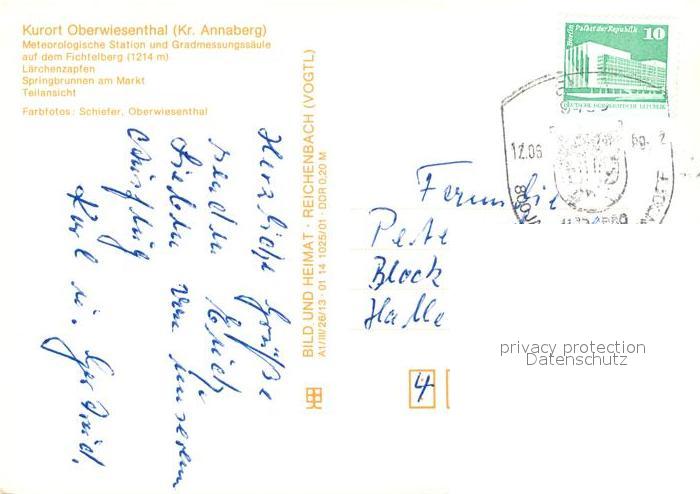 Kurort Oberwiesenthal (Kr. Annaberg)
Meteorologische Station und Gradmessungssäule
auf dem Fichtelberg (1214 m)
Lärchenzapfen
Springbrunnen am Markt
Teilansicht
Farbfotos: Schiefer, Oberwiesenthal
Herzliche Grüße
senden Euch
Lieben von unserem
Ausflug
Karl u. Gertrud.
BILD UND HEIMAT · REICHENBACH (VOGTL)
A1/III/26/13 · 01 14 1025/01 · DDR 0,20 M
Berlin Palast der Republik
10
DEUTSCHE DEMOKRATISCHE REPUBLIK
12.06
Familie
Pete
Block
Halle
4
privacy protection
Datenschutz